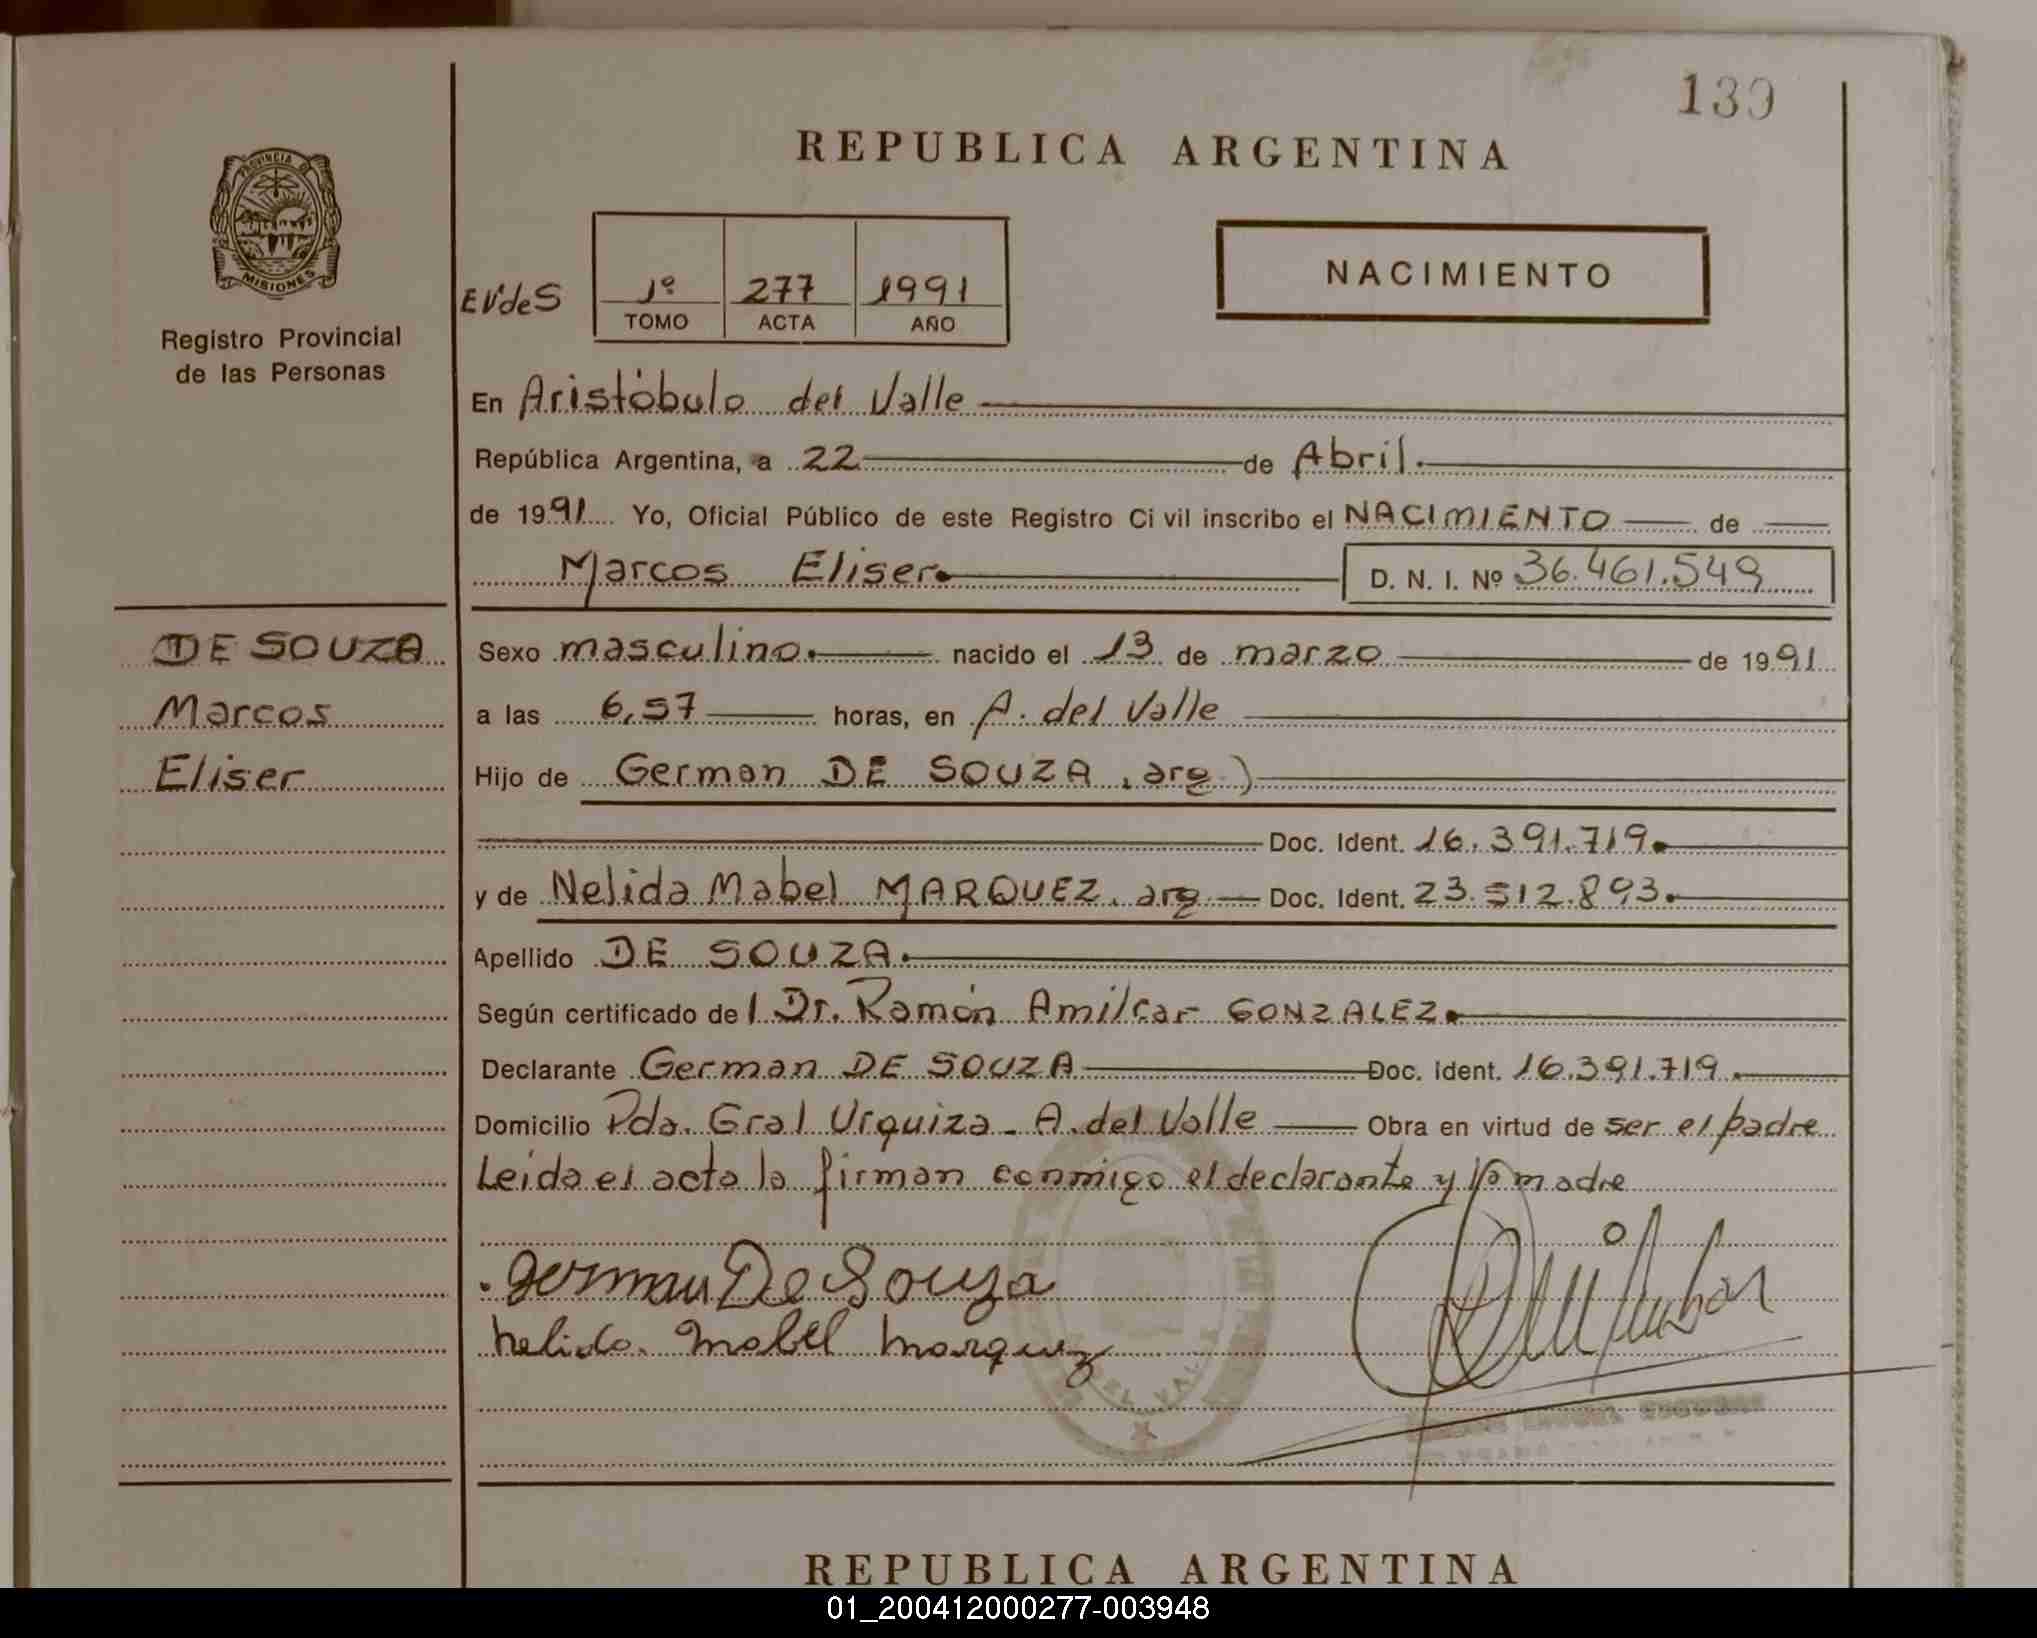 139
REPUBLICA ARGENTINA
PROVINCIA DE
MISIONES
Registro Provincial
de las Personas
EV'deS
1º 277 1991
TOMO ACTA AÑO
NACIMIENTO
En Aristóbulo del Valle
República Argentina, a 22 de Abril.
de 1991 Yo, Oficial Público de este Registro Ci vil inscribo el NACIMIENTO de
Marcos Eliser. D. N. I. Nº 36.461.549
DE SOUZA
Marcos
Eliser
Sexo masculino. nacido el 13 de marzo de 1991
a las 6,57 horas, en A. del Valle
Hijo de German DE SOUZA, arg.)
Doc. Ident. 16.391.719.
y de Nelida Mabel MARQUEZ, arg. Doc. Ident. 23.512.893.
Apellido DE SOUZA.
Según certificado del Dr. Ramón Amilcar GONZALEZ.
Declarante German DE SOUZA Doc. Ident. 16.391.719.
Domicilio Pda. Gral Urquiza - A. del Valle Obra en virtud de ser el padre
Leida el acta la firman conmigo el declarante y la madre
German De Souza
Nelida Mabel Marquez
DEL VALLE
REPUBLICA ARGENTINA
01_200412000277-003948